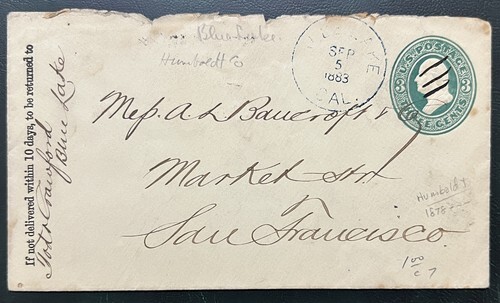 If not delivered within 10 days, to be returned to
Crawford
Blue Lake
Blue Lake
Humboldt Co
BLUE LAKE
SEP
5
1883
CAL.
U.S. POSTAGE
3 3
THREE CENTS
Mess. A. L. Bancroft &
Market str
San Francisco
Humboldt
1878
1 00
C 7